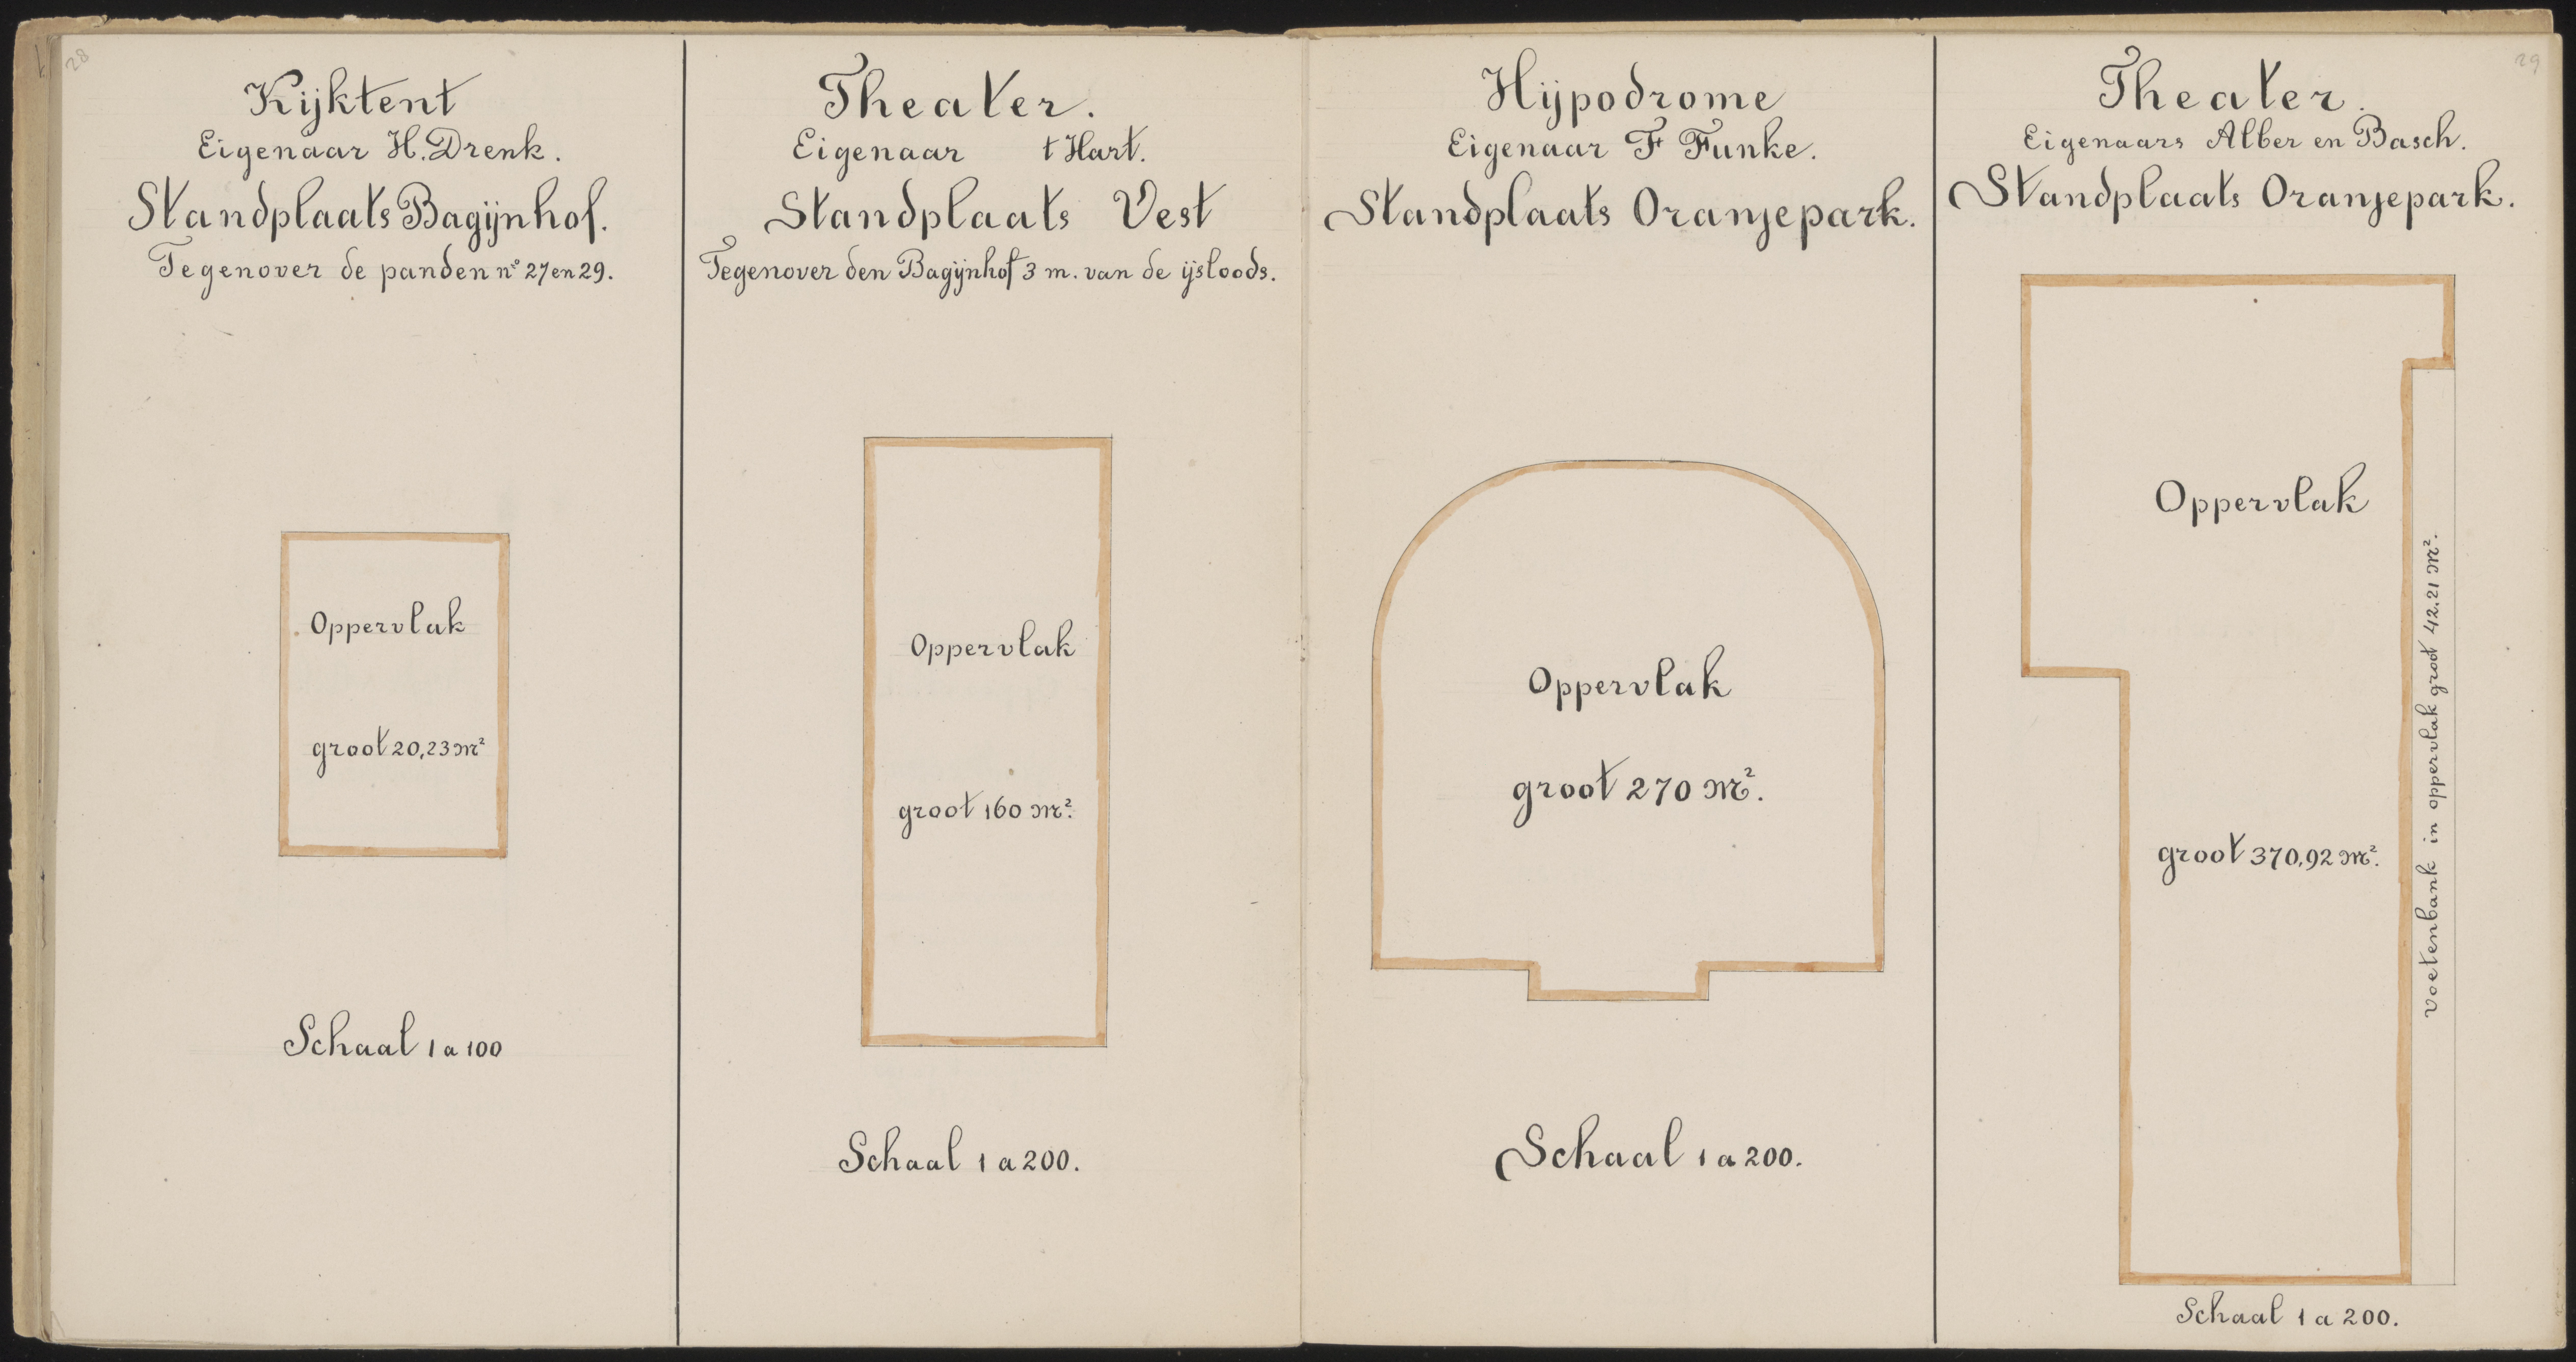 28
Kijktent
Eigenaar H. Drenk.
Standplaats Bagijnhof.
Tegenover de panden no 27 en 29.
Oppervlak
groot 20,23 M²
Schaal 1 a 100
Theater.
Eigenaar t Hart.
Standplaats Vest
Tegenover den Bagijnhof 3 m. van de ijsloods.
Oppervlak
groot 160 M².
Schaal 1 a 200.
Hijpodrome
Eigenaar F Funke.
Standplaats Oranjepark.
Oppervlak
groot 270 M².
Schaal 1 a 200.
29
Theater.
Eigenaars Alber en Basch.
Standplaats Oranjepark.
Oppervlak
groot 370,92 M².
voetenbank in oppervlak groot 42.21 M².
Schaal 1 a 200.